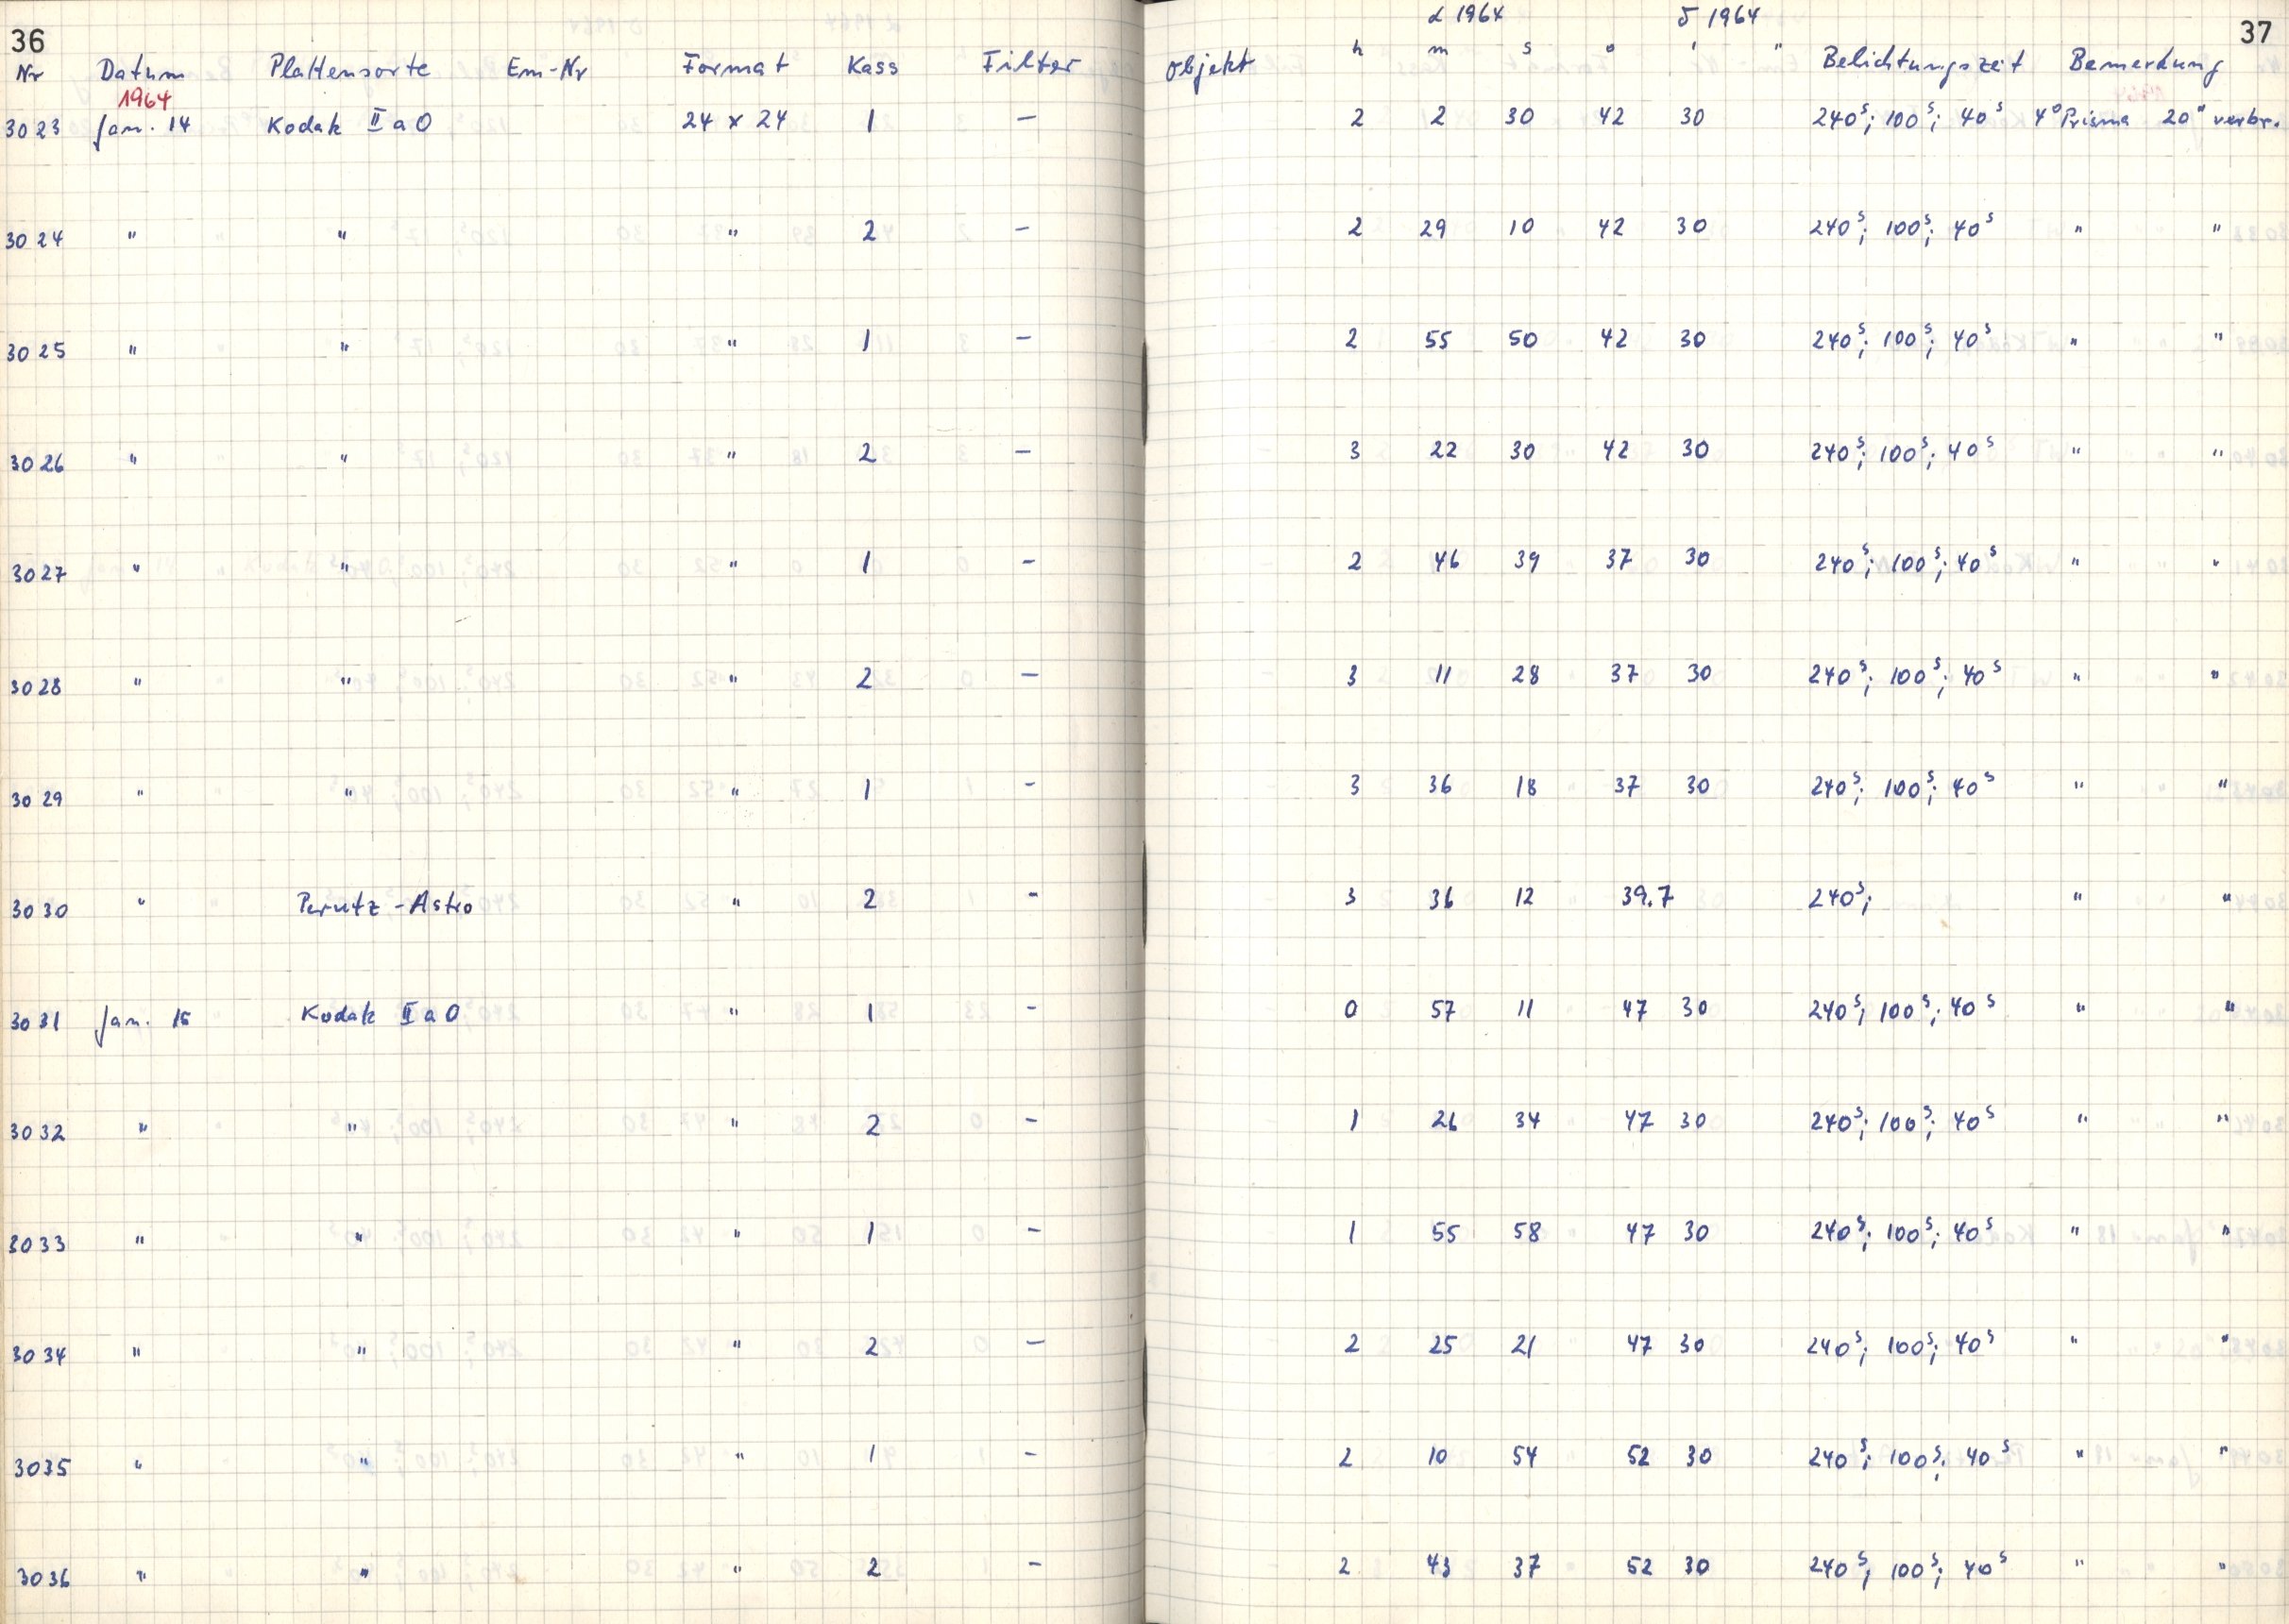 36 α 1964 δ 1964 37
Nr Datum Plattensorte Em-Nr Format Kass Filter Objekt h m s ° ' " Belichtungszeit Bemerkung
1964
3023 Jan. 14 Kodak II a O 24 x 24 1 – 2 2 30 42 30 240ˢ; 100ˢ; 40ˢ 4° Prisma 20" verbr.
3024 " " " 2 – 2 29 10 42 30 240ˢ; 100ˢ; 40ˢ " "
3025 " " " 1 – 2 55 50 42 30 240ˢ; 100ˢ; 40ˢ " "
3026 " " " 2 – 3 22 30 42 30 240ˢ; 100ˢ; 40ˢ " "
3027 " " " 1 – 2 46 39 37 30 240ˢ; 100ˢ; 40ˢ " "
3028 " " " 2 – 3 11 28 37 30 240ˢ; 100ˢ; 40ˢ " "
3029 " " " 1 – 3 36 18 37 30 240ˢ; 100ˢ; 40ˢ " "
3030 " Perutz-Astro " 2 – 3 36 12 39.7 240ˢ; " "
3031 Jan. 15 Kodak II a O " 1 – 0 57 11 47 30 240ˢ; 100ˢ; 40ˢ " "
3032 " " " 2 – 1 26 34 47 30 240ˢ; 100ˢ; 40ˢ " "
3033 " " " 1 – 1 55 58 47 30 240ˢ; 100ˢ; 40ˢ " "
3034 " " " 2 – 2 25 21 47 30 240ˢ; 100ˢ; 40ˢ " "
3035 " " " 1 – 2 10 54 52 30 240ˢ; 100ˢ; 40ˢ " "
3036 " " " 2 – 2 43 37 52 30 240ˢ; 100ˢ; 40ˢ " "